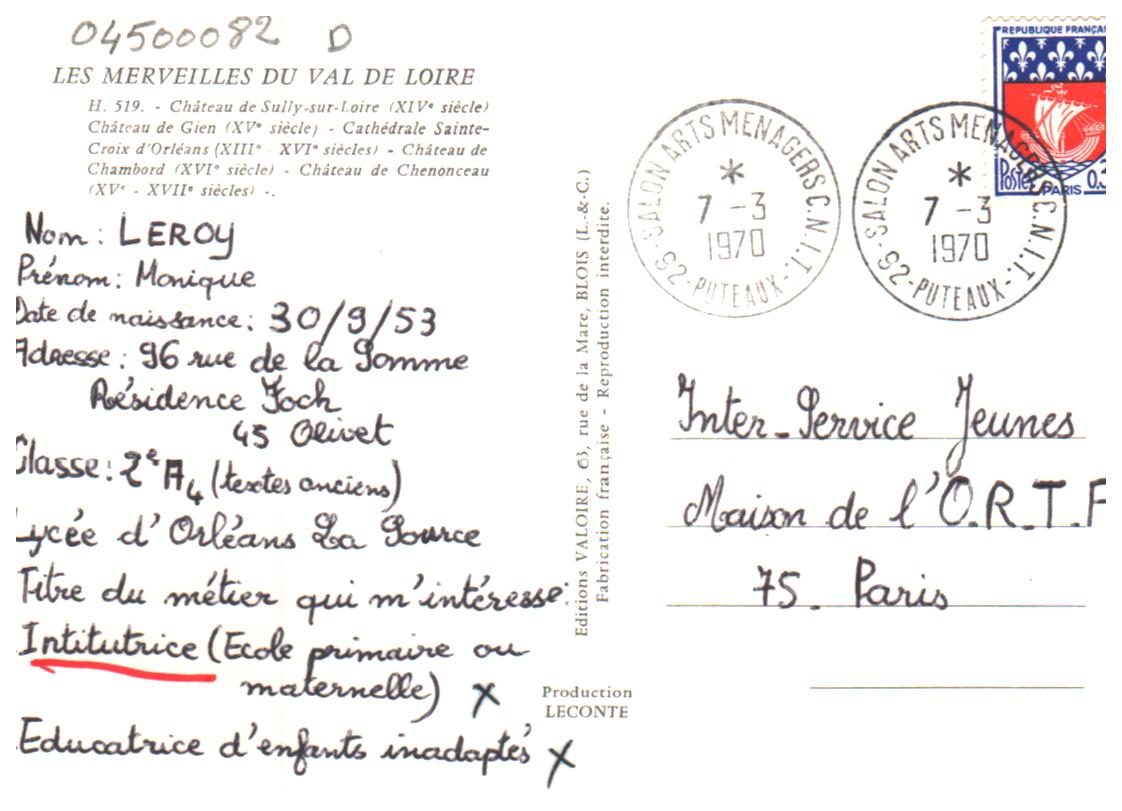 04500082 D
LES MERVEILLES DU VAL DE LOIRE
H. 519. - Château de Sully-sur-Loire (XIVe siècle)
Château de Gien (XVe siècle) - Cathédrale Sainte-
Croix d'Orléans (XIIIe - XVIe siècles) - Château de
Chambord (XVIe siècle) - Château de Chenonceau
(XVe - XVIIe siècles) -.
Nom : LEROY
Prénom : Monique
Date de naissance : 30/9/53
Adresse : 96 rue de la Somme
Résidence Foch
45 Olivet
Classe : 2e A4 (textes anciens)
Lycée d'Orléans La Source
Titre du métier qui m'intéresse :
Intitutrice (Ecole primaire ou
maternelle) X
Educatrice d'enfants inadaptés X
Editions VALOIRE, 63, rue de la Mare, BLOIS (L.-&-C.)
Fabrication française - Reproduction interdite.
Production
LECONTE
REPUBLIQUE FRANÇA
Postes
PARIS
0.3
SALON ARTS MENAGERS C.N.I.T.
*
7 - 3
1970
92 - PUTEAUX -
SALON ARTS MENAGERS C.N.I.T.
*
7 - 3
1970
92 - PUTEAUX -
Inter-Service Jeunes
Maison de l'O.R.T.F
75 - Paris